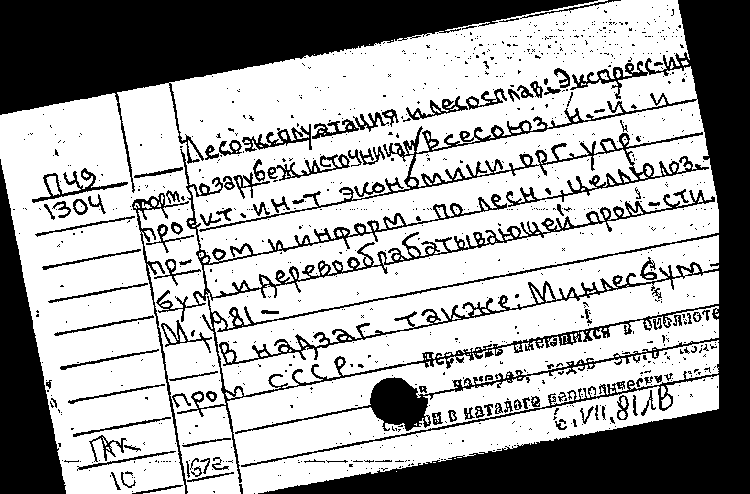 Лесоэксплуатация и лесосплав: Экспресс-ин
П49
1304
форм. по зарубеж. источникам / Всесоюз. н.-и. и
проект. ин-т экономики, орг. упр.
пр-вом и информ. по лесн., целлюлоз.-
бум. и деревообрабатывающей пром-сти.
М., 1981 -
В надзаг. также: Минлесбум-
пром СССР.
Перечень имеющихся в библиоте
номеров, годов этого
в каталоге периодических
с. VII. 81 ЛВ
ГАК
10
167г